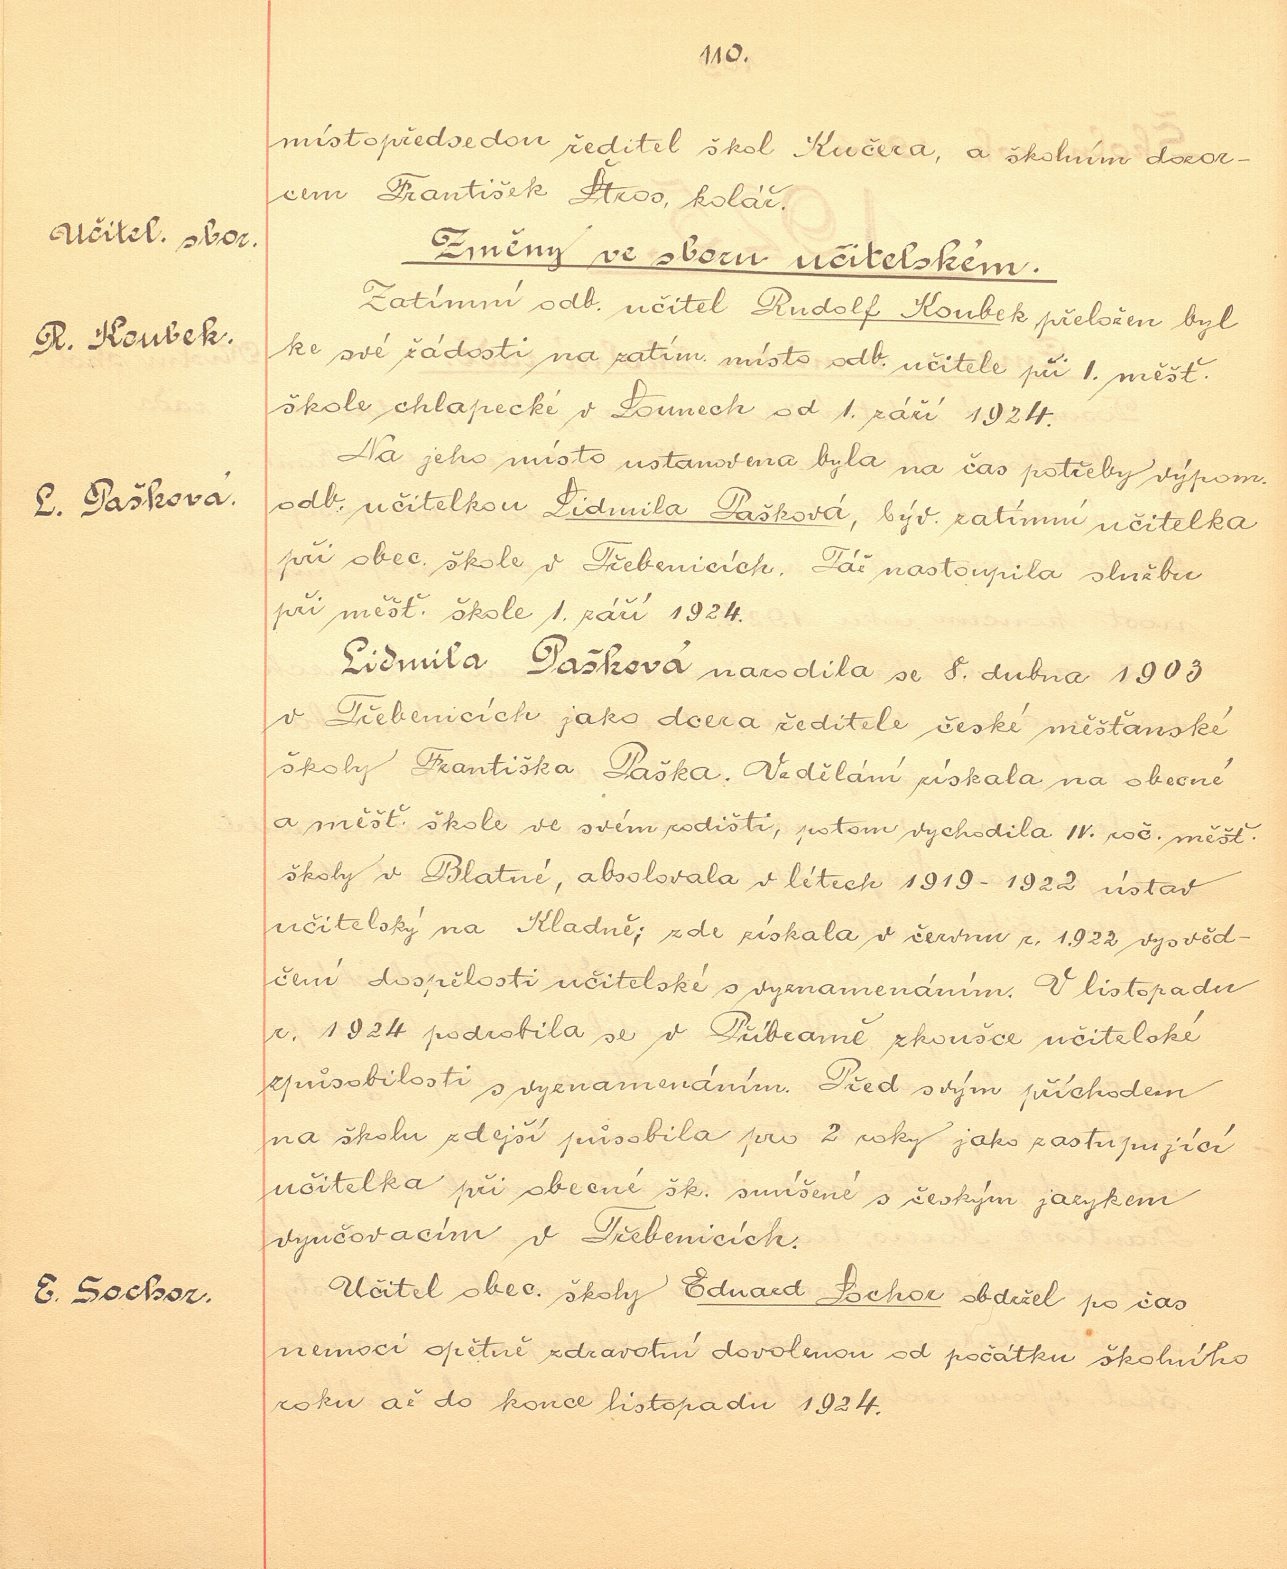 110.
místopředsedou ředitel škol Kučera, a školním dozor-
cem František Štros, kolář.
Učitel. sbor.
Změny ve sboru učitelském.
Zatímní odb. učitel Rudolf Koubek přeložen byl
R. Koubek.
ke své žádosti na zatím. místo odb. učitele při 1. měšť.
škole chlapecké v Lounech od 1. září 1924.
Na jeho místo ustanovena byla na čas potřeby výpom.
L. Pašková.
odb. učitelkou Lidmila Pašková, býv. zatímní učitelka
při obec. škole v Třebenicích. Táž nastoupila službu
při měšť. škole 1. září 1924.
Lidmila Pašková narodila se 8. dubna 1903
v Třebenicích jako dcera ředitele české měšťanské
školy Františka Paška. Vzdělání získala na obecné
a měšť. škole ve svém rodišti, potom vychodila IV. roč. měšť.
školy v Blatné, absolovala v létech 1919-1922 ústav
učitelský na Kladně; zde získala v červnu r. 1922 vysvěd-
čení dospělosti učitelské s vyznamenáním. V listopadu
r. 1924 podrobila se v Příbramě zkoušce učitelské
způsobilosti s vyznamenáním. Před svým příchodem
na školu zdejší působila pro 2 roky jako zastupující
učitelka při obecné šk. smíšené s českým jazykem
vyučovacím v Třebenicích.
E. Sochor.
Učitel obec. školy Eduard Sochor obdržel po čas
nemoci opětně zdravotní dovolenou od počátku školního
roku až do konce listopadu 1924.